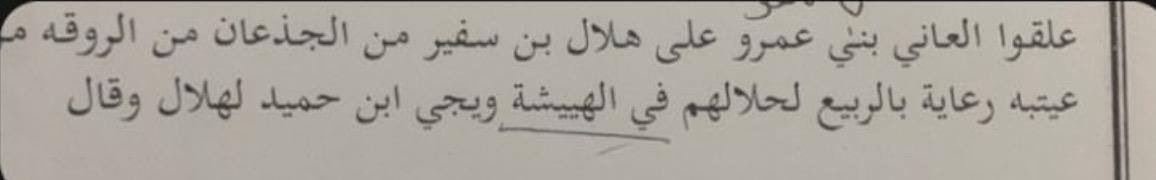 علقوا العاني بني عمرو على هلال بن سفير من الجذعان من الروقه
عيتبه رعاية بالربيع لحلالهم في الهييشة ويجي ابن حميد لهلال وقال